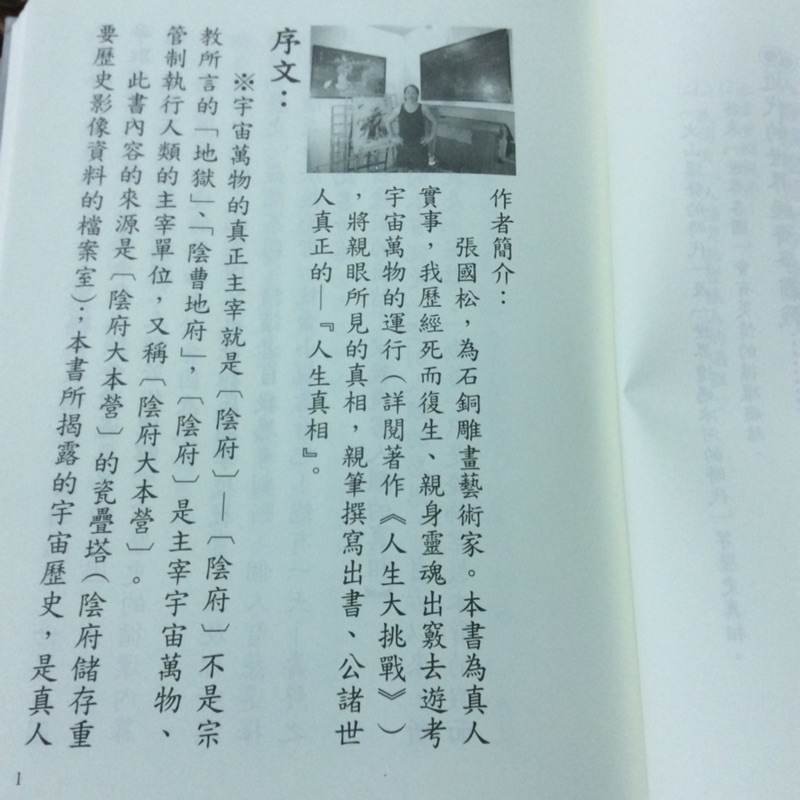 作者簡介：
張國松，為石銅雕畫藝術家。本書為真人
實事，我歷經死而復生、親身靈魂出竅去遊考
宇宙萬物的運行（詳閱著作《人生大挑戰》）
，將親眼所見的真相，親筆撰寫出書、公諸世
人真正的—『人生真相』。
序文：
※宇宙萬物的真正主宰就是〔陰府〕—〔陰府〕不是宗
教所言的「地獄」、「陰曹地府」，〔陰府〕是主宰宇宙萬物、
管制執行人類的主宰單位，又稱〔陰府大本營〕。
此書內容的來源是〔陰府大本營〕的瓷疊塔（陰府儲存重
要歷史影像資料的檔案室）；本書所揭露的宇宙歷史，是真人
1